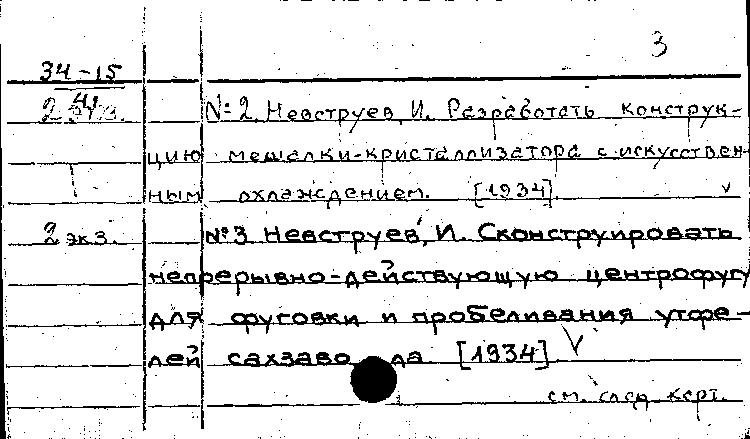 3
34-15
41
2 экз. №2. Невструев, И. Разработать конструк-
цию мешалки-кристаллизатора с искусствен-
ным охлаждением. [1934]. v
2 экз. №3 Невструев, И. Сконструировать
непрерывно-действующую центрофугу
для фуговки и пробеливания утфе-
лей сахзаво да [1934] V
см. след. карт.